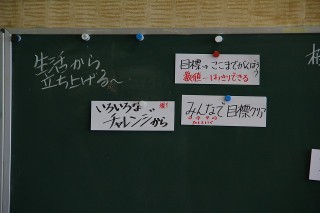 生活から
立ち上げる〜
目標→ここまでがんばろう
数値…はっきりできる
いろいろな
チャレンジから
みんなで目標クリア